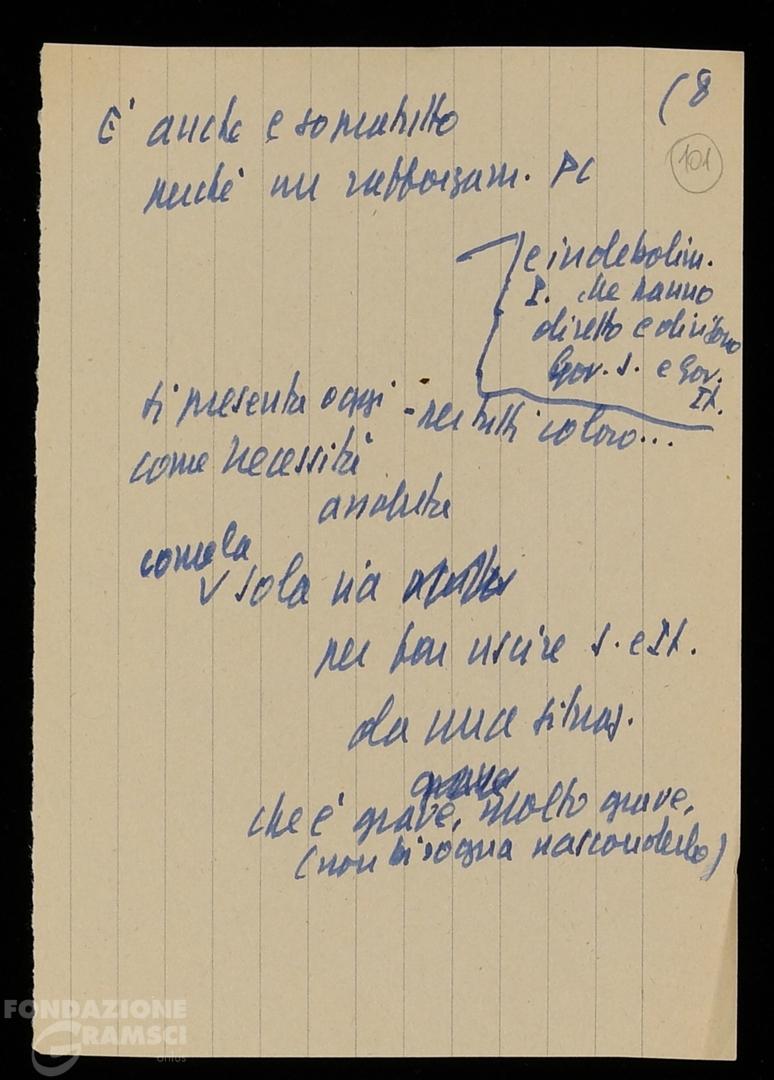 (8
101
E' anche e sopratutto
perché un rafforzam. PC
e indebolim.
P. che hanno
diretto e dirigono
Gov. S. e Gov.
It.
si presenta oggi - per tutti coloro...
come necessità
assoluta
come la
sola via
per far uscire S. e It.
da una situaz.
che è grave, molto grave,
(non bisogna nasconderlo)
FONDAZIONE
GRAMSCI
onlus